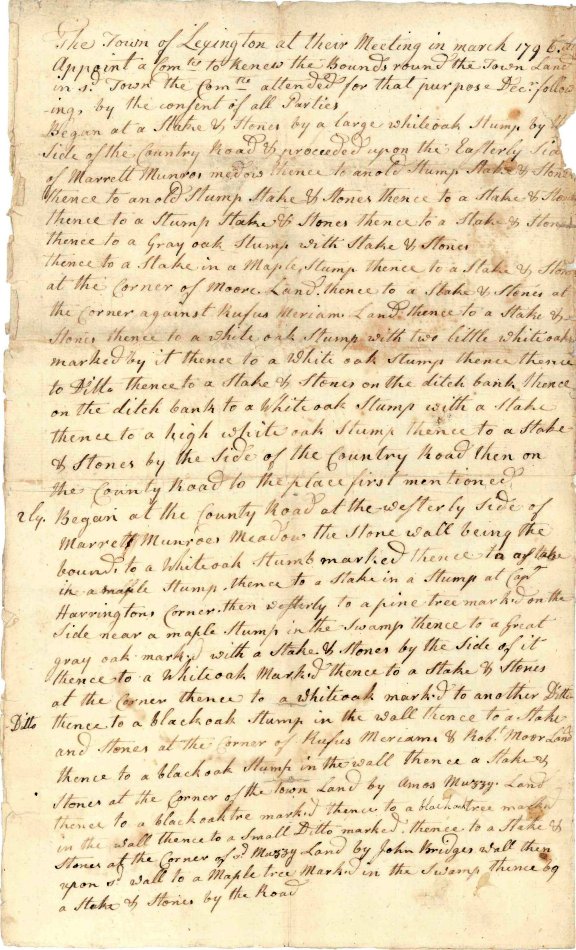 The Town of Lexington at their Meeting in march 1796
Appoint a Comtee to Renew the Bounds round the Town Land
in sd. Town the Comtee attended for that purpose Decr. follow
ing, by the consent of all Parties
Began at a Stake & Stones by a large white oak Stump by
Side of the Country Road & proceeded upon the Easterly Side
of Marrett Munros medow thence to an old Stump Stake & Stones
thence to an old Stump Stake & Stones thence to a Stake & Stones
thence to a Stump Stake & Stones thence to a Stake & Stones
thence to a Gray oak Stump with Stake & Stones
thence to a Stake in a Maple Stump thence to a Stake & Stones
at the Corner of Moore. Land. thence to a Stake & Stones at
the Corner against Rufus Meriam. Land thence to a Stake &
Stones thence to a white oak Stump with two little white oaks
marked by it thence to a White oak Stump thence thence
to Ditto thence to a Stake & Stones on the ditch bank thence
on the ditch bank to a White oak Stump with a Stake
thence to a high white oak Stump thence to a Stake
& Stones by the Side of the Country Road then on
the County Road to the place first mentioned
2ly. Began at the County Road at the westerly Side of
Marrett Munroes Meadow the Stone wall being the
bounds to a White oak Stumb marked thence to a Stake
in a maple Stump. thence to a Stake in a Stump at Capt
Harringtons Corner. then westerly to a pine tree marked on the
Side near a maple Stump in the Swamp thence to a great
gray oak mark'd with a Stake & Stones by the Side of it
thence to a White oak Mark'd thence to a Stake & Stones
at the Corner thence to a white oak mark'd to another Ditto
Ditto thence to a black oak Stump in the wall thence to a Stake
and Stones at the Corner of Rufus Meriams & Robt. Moor Land
thence to a black oak Stump in the wall thence a Stake &
Stones at the Corner of the town Land by Amos Muzzy. Land
thence to a black oak tree mark'd thence to a black oak tree mark'd
in the wall thence to a Small Ditto marked. thence to a Stake &
Stones at the Corner of sd. Muzzy Land by John Bridges wall then
upon sd. wall to a Maple tree Mark'd in the Swamp thence by
a Stake & Stones by the Road